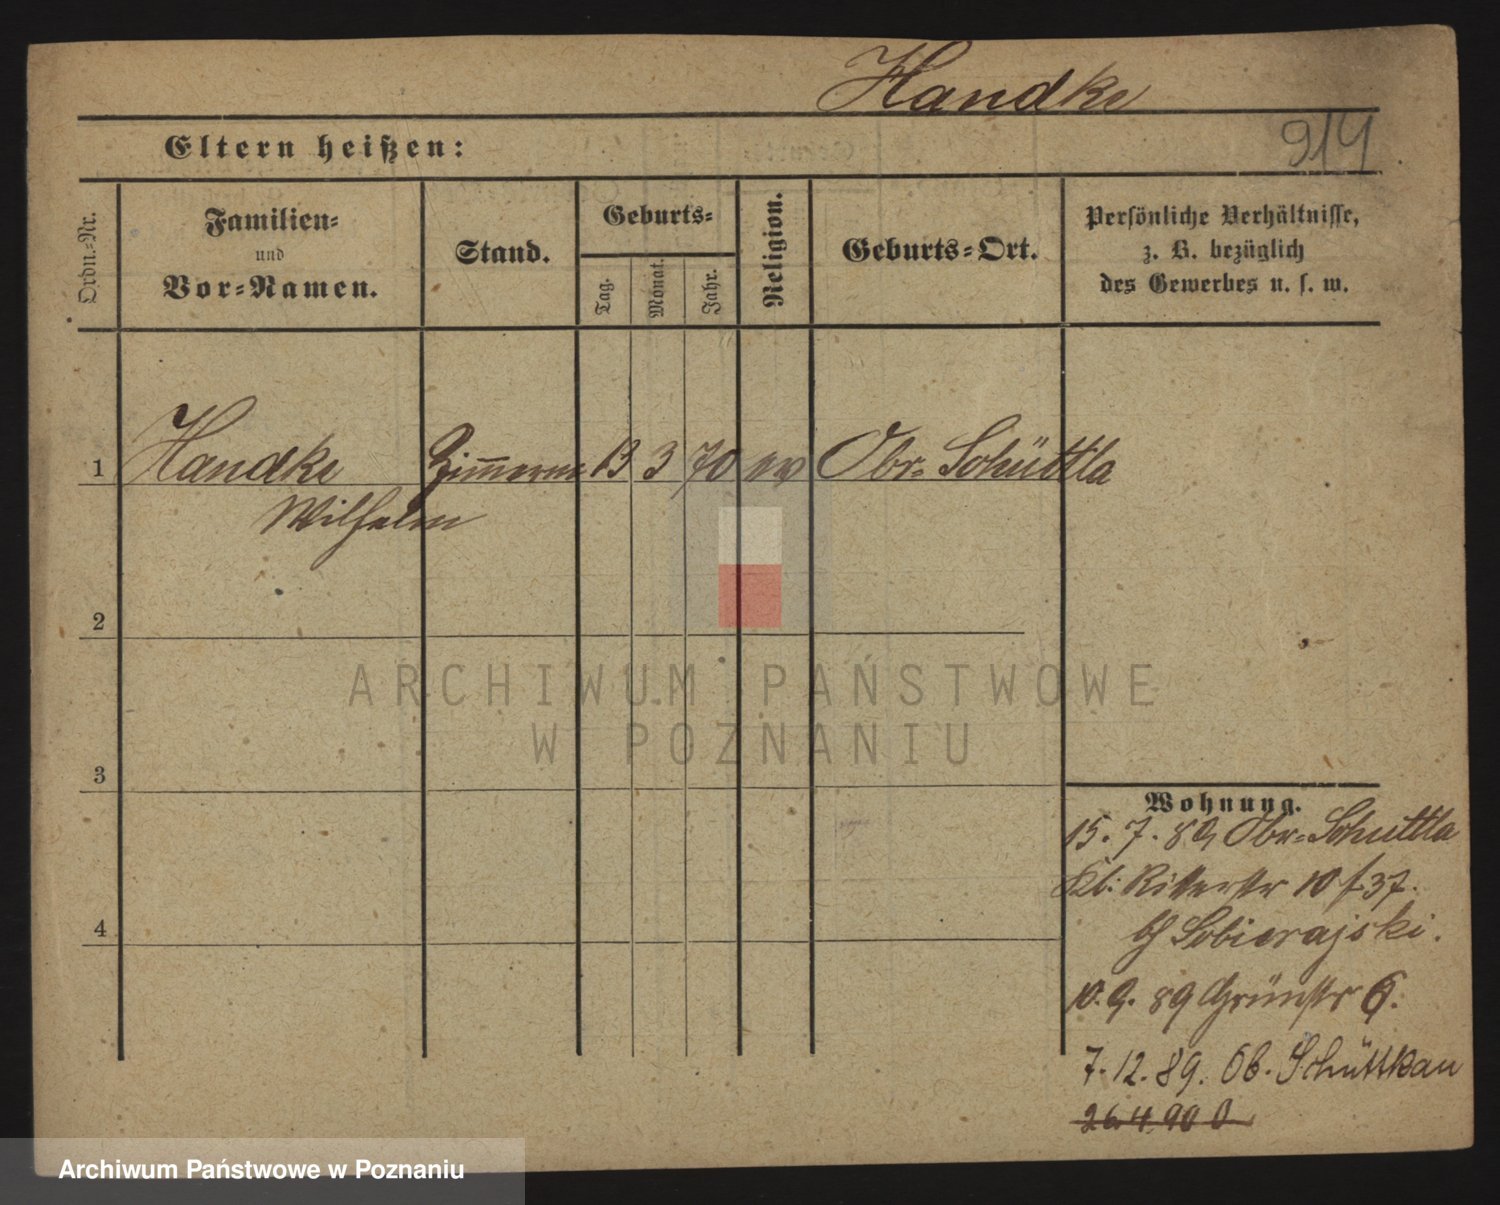 Handke
914
Eltern heißen:
Ordn.=Nr.
Familien=
und
Vor=Namen.
Stand.
Geburts=
Tag.
Monat.
Jahr.
Religion.
Geburts=Ort.
Persönliche Verhältnisse,
z. B. bezüglich
des Gewerbes u. s. w.
1 Handke Zimmerm 13 3 70 ev Obr= Schüttla
Wilhelm
2
3
4
Wohnung.
15. 7. 89 Obr=Schuttla
Ritterstr 10 37.
Sobierajski.
10. 9. 89 Grünstr 6.
7. 12. 89. Ob. Schüttkau
26 4 90
ARCHIWUM PAŃSTWOWE
W POZNANIU
Archiwum Państwowe w Poznaniu